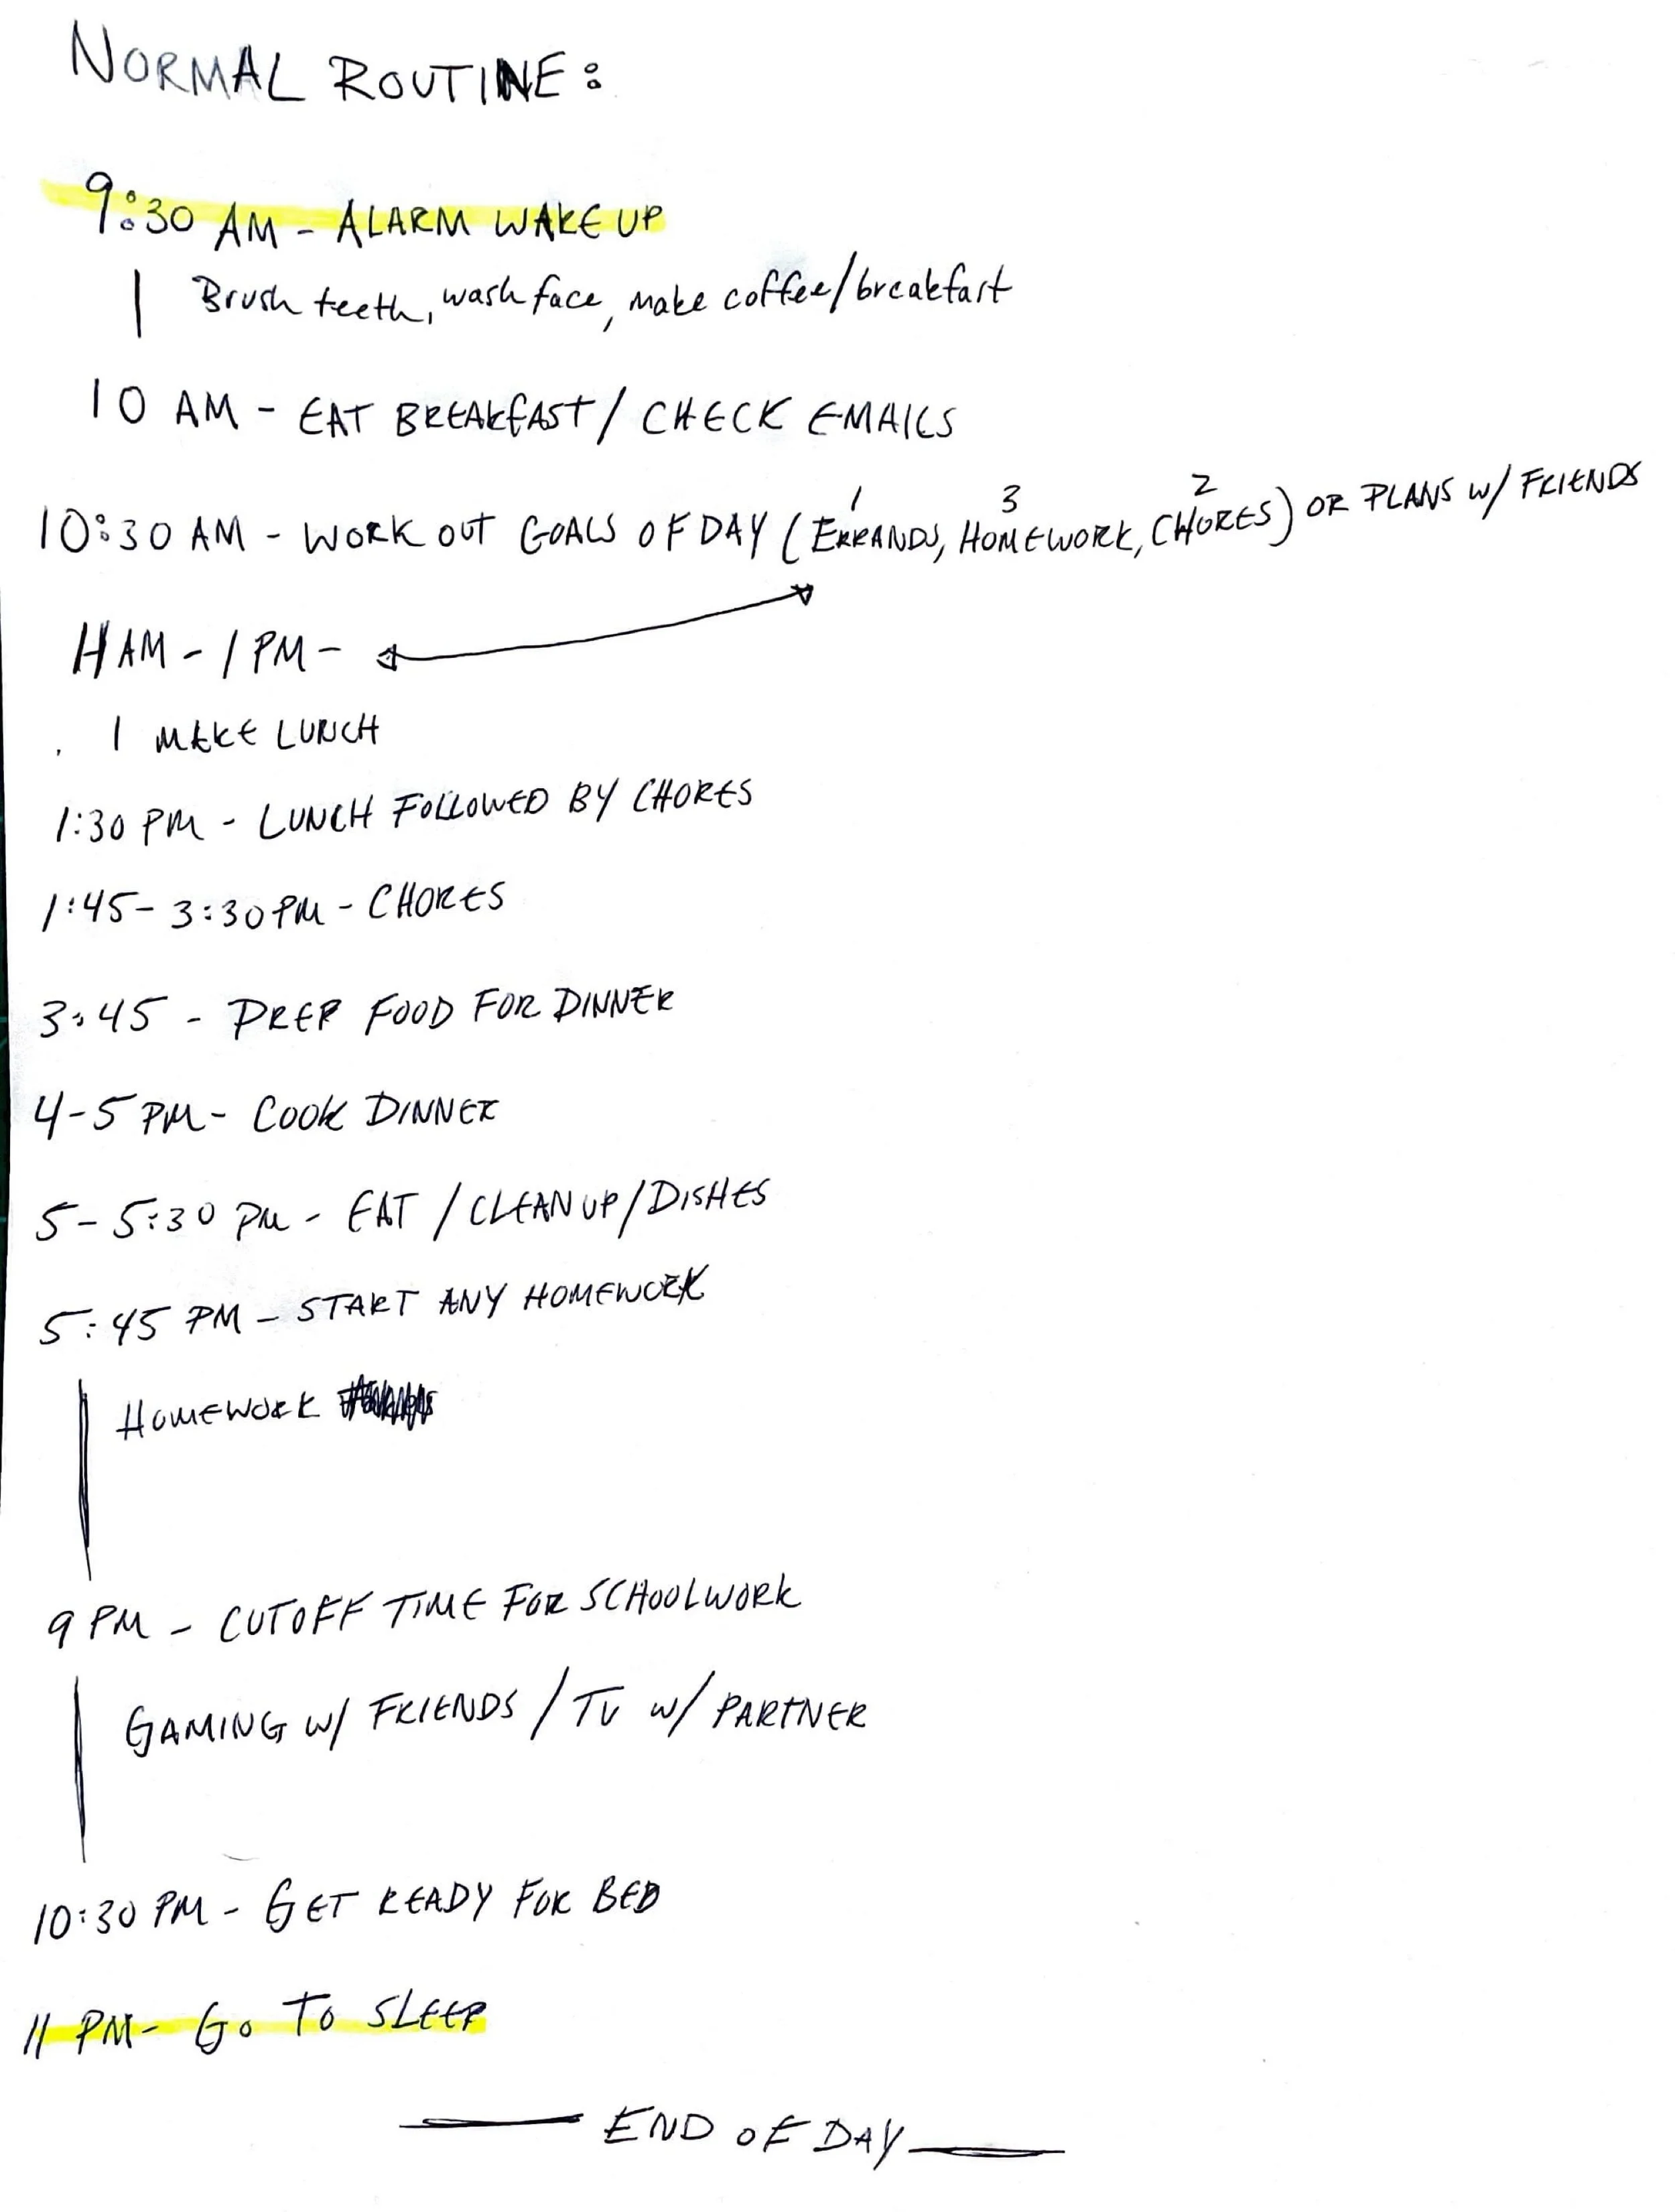 NORMAL ROUTINE:
9:30 AM - ALARM WAKE UP
Brush teeth, wash face, make coffee/breakfast
10 AM - EAT BREAKFAST / CHECK EMAILS
1 3 2
10:30 AM - WORK OUT GOALS OF DAY (ERRANDS, HOMEWORK, CHORES) OR PLANS W/ FRIENDS
11 AM - 1 PM -
MAKE LUNCH
1:30 PM - LUNCH FOLLOWED BY CHORES
1:45 - 3:30 PM - CHORES
3:45 - PREP FOOD FOR DINNER
4-5 PM - COOK DINNER
5-5:30 PM - EAT / CLEAN UP / DISHES
5:45 PM - START ANY HOMEWORK
HOMEWORK
9 PM - CUTOFF TIME FOR SCHOOLWORK
GAMING W/ FRIENDS / TV W/ PARTNER
10:30 PM - GET READY FOR BED
11 PM - GO TO SLEEP
END OF DAY